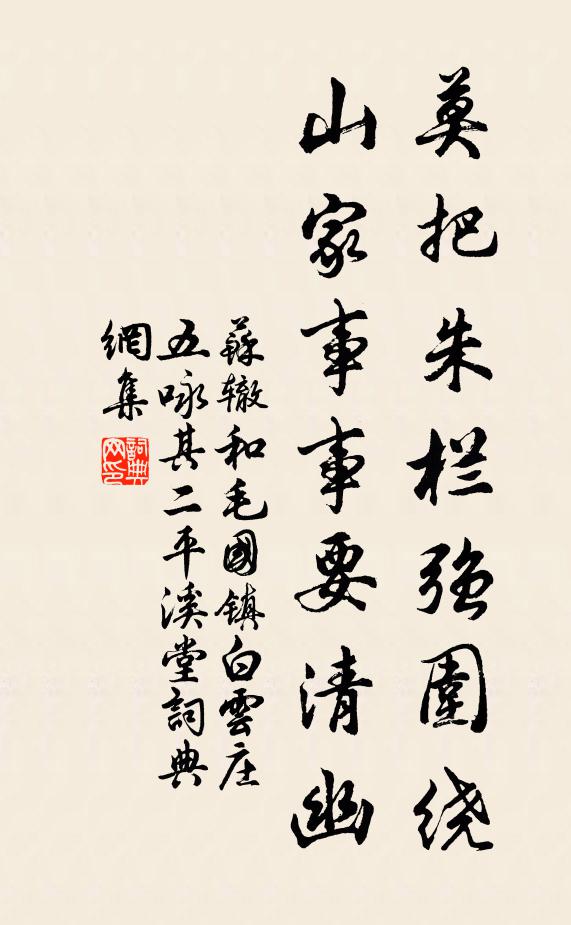 莫把朱栏强圍绕
山家事事要清幽
蘇辙和毛國镇白雲庄
五咏其二平溪堂詞典
網集
詞典网印